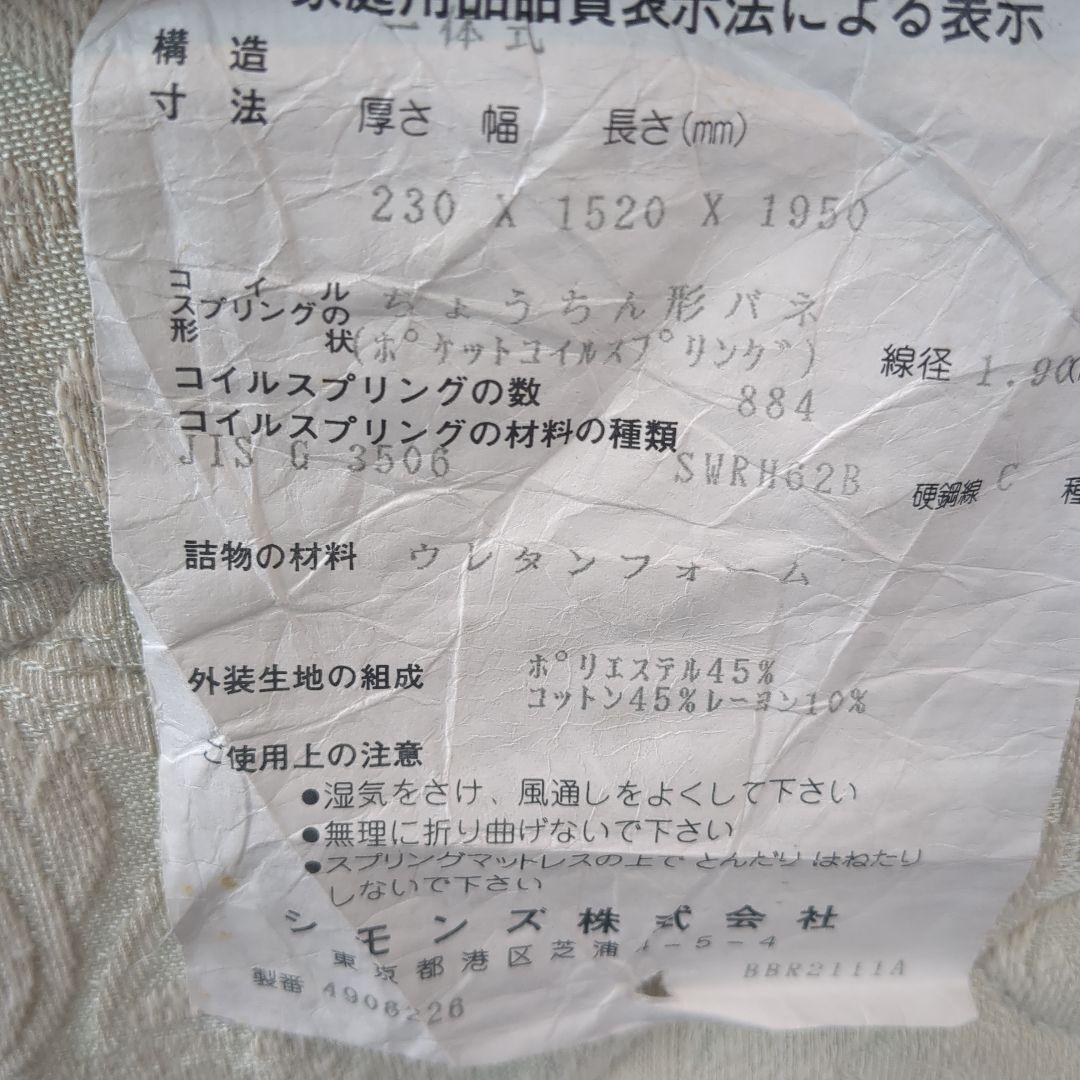 家庭用品品質表示法による表示
構造 一体式
寸法 厚さ 幅 長さ(mm)
230 X 1520 X 1950
コイルスプリングの形状 ちょうちん形バネ
(ポケットコイルスプリング) 線径 1.90
コイルスプリングの数 884
コイルスプリングの材料の種類
JIS G 3506 SWRH62B 硬鋼線 C 種
詰物の材料 ウレタンフォーム
外装生地の組成 ポリエステル45%
コットン45%レーヨン10%
ご使用上の注意
●湿気をさけ、風通しをよくして下さい
●無理に折り曲げないで下さい
●スプリングマットレスの上でとんだりはねたり
しないで下さい
シモンズ株式会社
東京都港区芝浦 -5-4
製番 4906226 BBR2111A